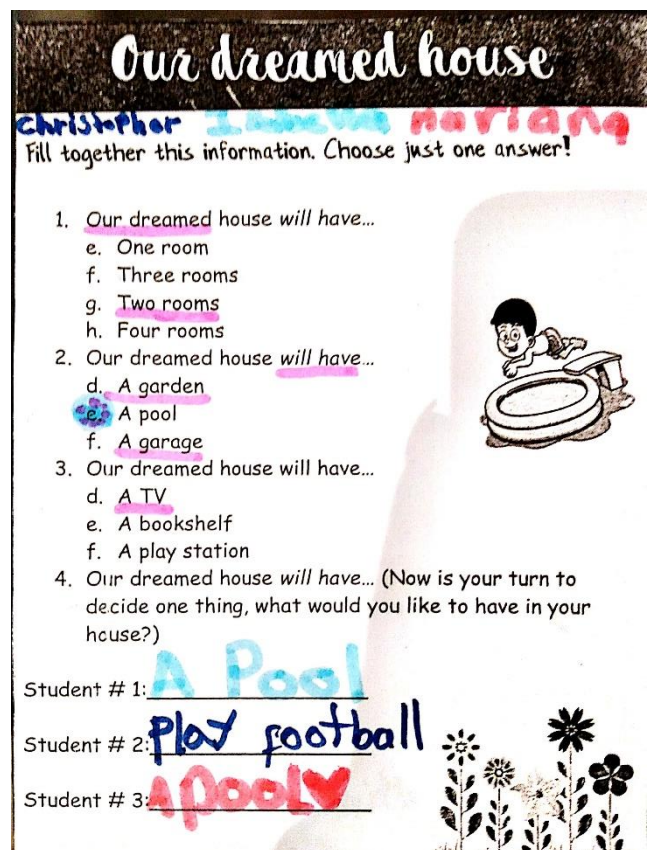 Our dreamed house
Christopher Isabella Mariana
Fill together this information. Choose just one answer!
1. Our dreamed house will have...
e. One room
f. Three rooms
g. Two rooms
h. Four rooms
2. Our dreamed house will have...
d. A garden
e. A pool
f. A garage
3. Our dreamed house will have...
d. A TV
e. A bookshelf
f. A play station
4. Our dreamed house will have... (Now is your turn to
decide one thing, what would you like to have in your
house?)
Student # 1: A Pool
Student # 2: Play football
Student # 3: A pooL